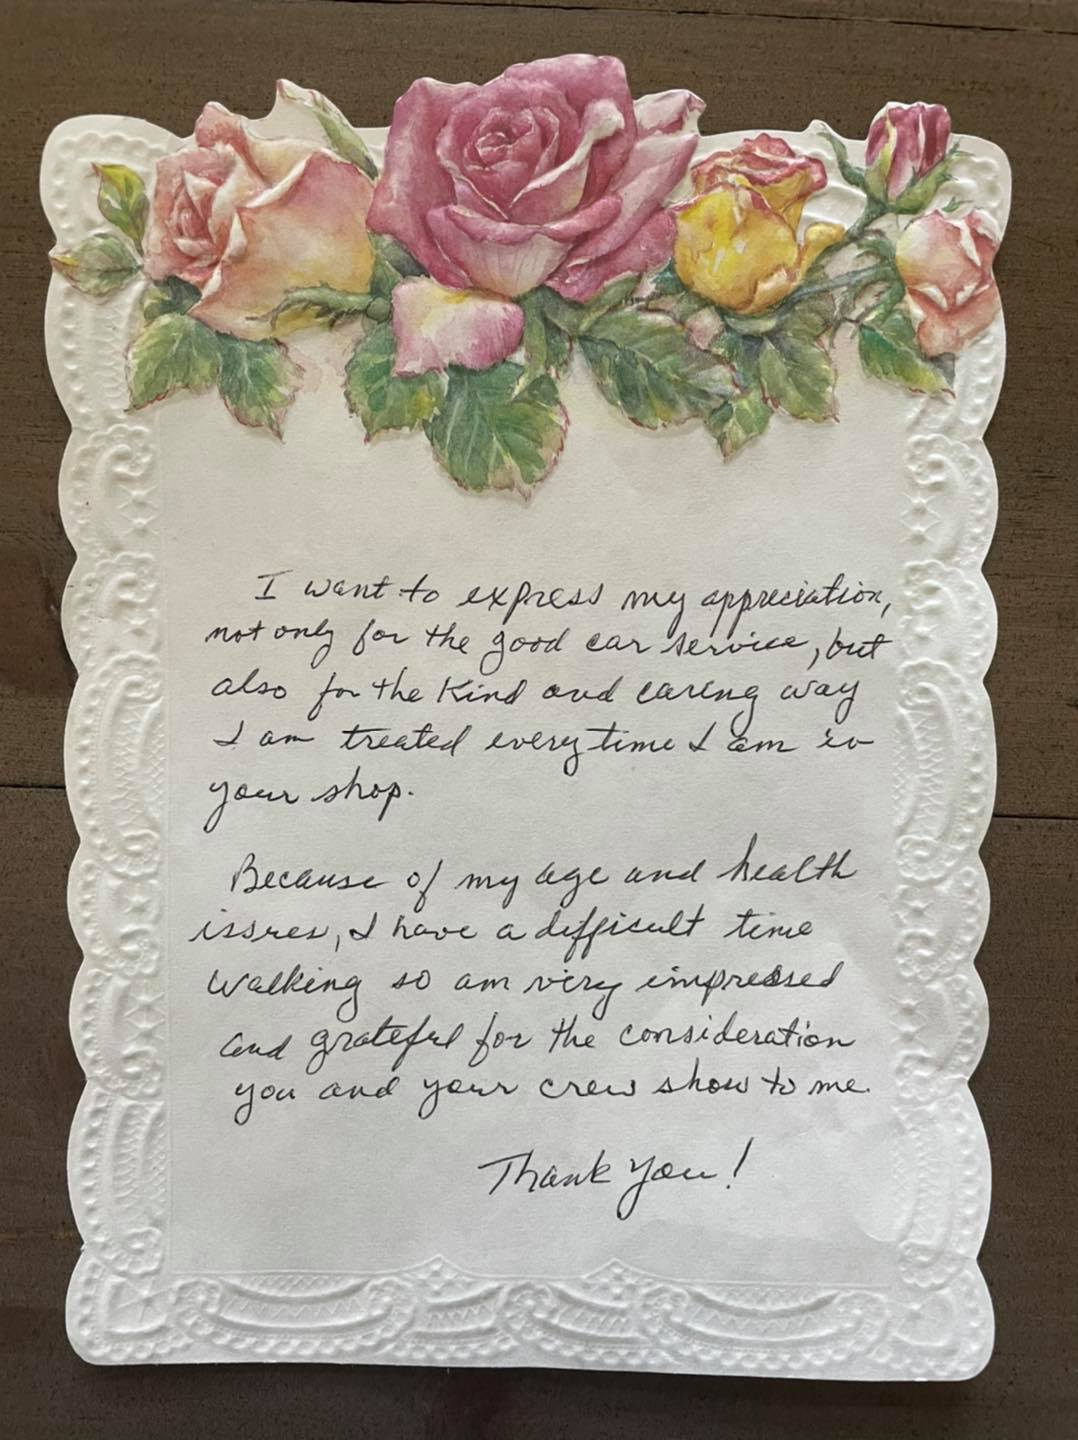 I want to express my appreciation,
not only for the good car service, but
also for the Kind and caring way
I am treated everytime I am in
your shop.
Because of my age and health
issres, I have a difficult time
walking so am very impressed
and grateful for the consideration
you and your crew show to me.
Thank You!